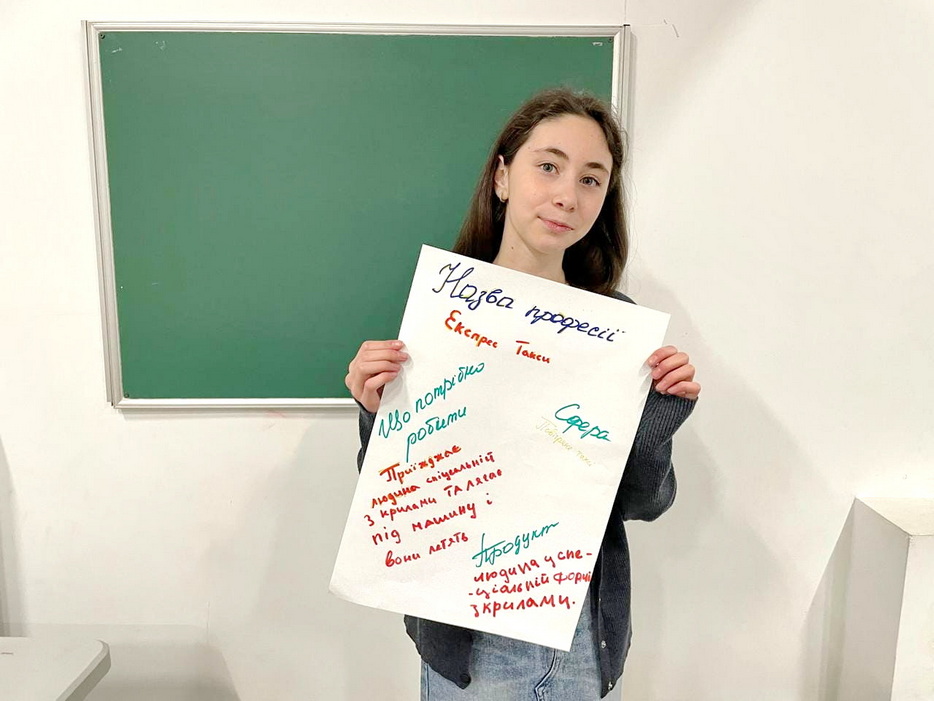 Назва професії
Експрес Такси
Що потрібно
робити
Приїжджає
людина спіцеальній
з крилами та лягає
під машину і
вони летять
Сфера
таксі
Продукт
людина у спе-
-ціальній формі
з крилами.